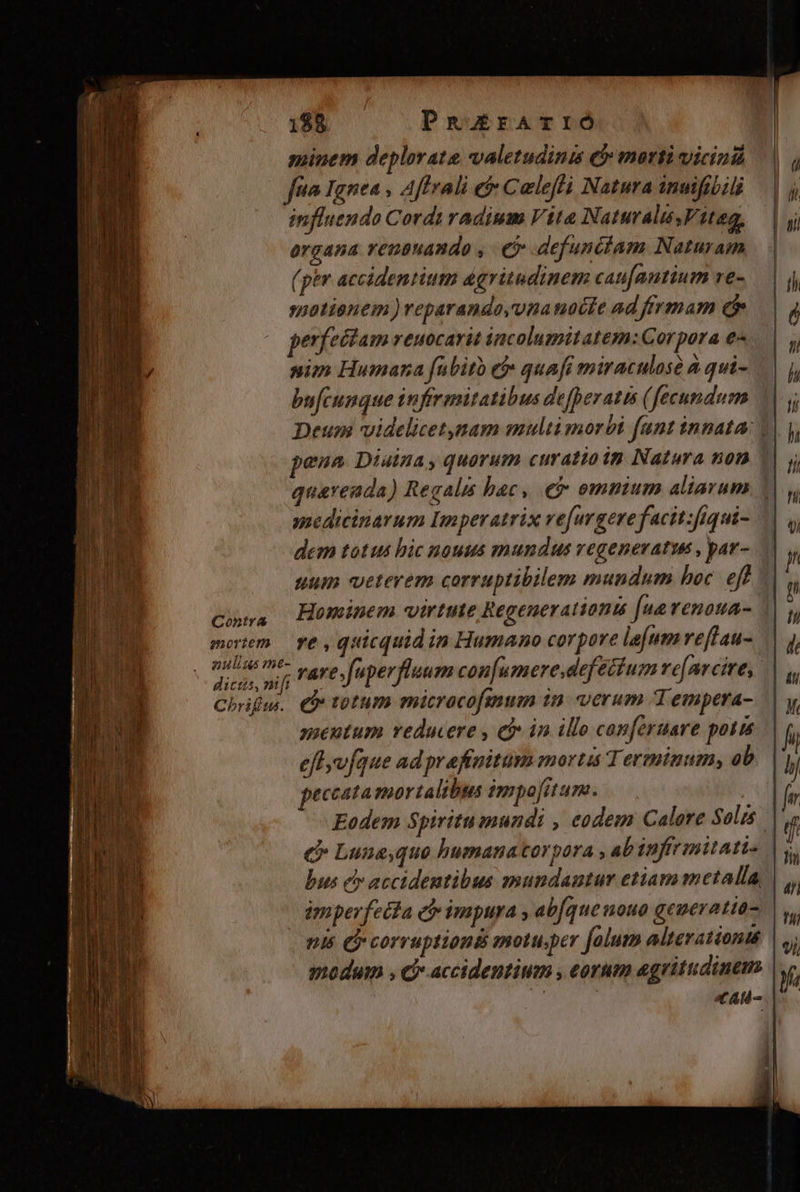 188 PRÆFATIO
minem deplorate valetudinis & morti vicinũ
sua Ignea, Astrali & Cælesti Natura inuisibili
influendo Cordi radium Vitæ Naturalis, Vitæq́,
organa renouando, & defunctam Naturam
(per accidentium ægritudinem causantium re-
motionem) reparando, vna nocte ad firmam &
perfectam reuocarit incolumitatem: Corpora e-
nim Humana subitò & quasi miraculosè à qui-
buscunque infirmitatibus desperatis (secundum
Deum videlicet, nam multi morbi sunt innata
pœna Diuina, quorum curatio in Natura non
quærenda) Regalis hæc, & omnium aliarum
medicinarum Imperatrix resurgere facit: siqui-
dem totus hic nouus mundus regeneratus, par-
uum veterem corruptibilem mundum hoc est
Hominem virtute Regenerationis suæ renoua-
Contra
mortem
nullus me-
dicus, nisi
Christus.
re, quicquid in Humano corpore læsum restau-
rare, superfluum consumere, defectum resarcire,
& totum microcosmum in verum Tempera-
mentum reducere, & in illo conseruare potis
est, vsque ad præfinitum mortis Terminum, ob
peccata mortalibus impositum.
Eodem Spiritu mundi, eodem Calore Solis
& Lunæ, quo humana corpora, ab infirmitati-
bus & accidentibus mundantur etiam metalla
imperfecta & impura, absque nouo generatio-
nis & corruptionis motu, per solum alterationis
modum, & accidentium, eorum ægritudinem
cau-